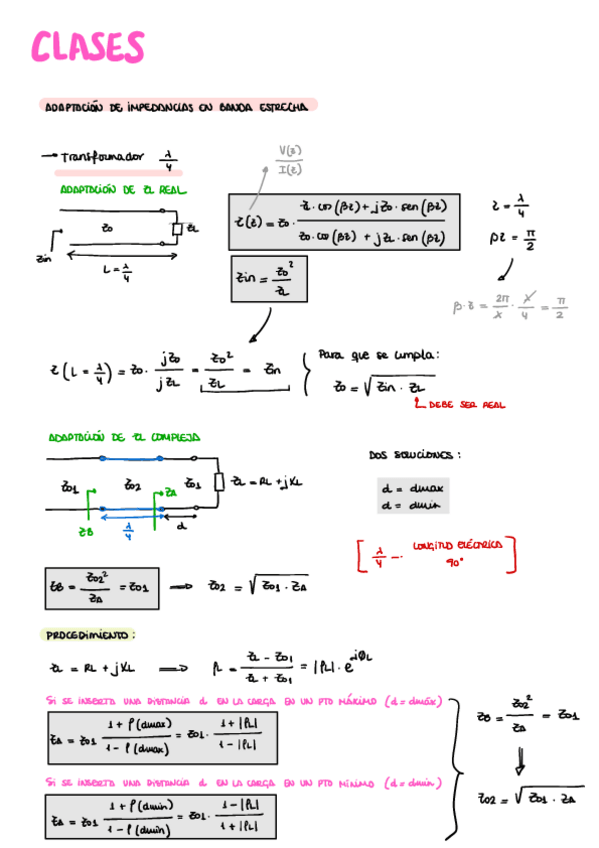 CLASES
ADAPTACIÓN DE IMPEDANCIAS EN BANDA ESTRECHA
→ Transformador λ/4
V(z)/I(z)
ADAPTACIÓN DE ZL REAL
Z0 ZL
Zin
L = λ/4
Z(z) = Z0 · (ZL · cos(βz) + jZ0 · sen(βz)) / (Z0 · cos(βz) + jZL · sen(βz))
z = λ/4
βz = π/2
Zin = Z0²/ZL
β·z = 2π/λ · λ/4 = π/2
Z(L = λ/4) = Z0 · jZ0/jZL = Z0²/ZL = Zin
Para que se cumpla:
Z0 = √(Zin · ZL)
DEBE SER REAL
ADAPTACIÓN DE ZL COMPLEJA
Z01 Z02 ZA Z01 ZL = RL + jXL
ZB λ/4 d
DOS SOLUCIONES:
d = dmax
d = dmin
[λ/4 – LONGITUD ELÉCTRICA 90°]
ZB = Z02²/ZA = Z01 ⟹ Z02 = √(Z01 · ZA)
PROCEDIMIENTO:
ZL = RL + jXL ⟹ ρL = (ZL − Z01)/(ZL + Z01) = |ρL| · e^jΦL
Si SE INSERTA UNA DISTANCIA d EN LA CARGA EN UN PTO MÁXIMO (d = dmáx)
ZA = Z01 (1 + ρ(dmax))/(1 − ρ(dmax)) = Z01 · (1 + |ρL|)/(1 − |ρL|)
ZB = Z02²/ZA = Z01
Si SE INSERTA UNA DISTANCIA d EN LA CARGA EN UN PTO MÍNIMO (d = dmin)
ZA = Z01 (1 + ρ(dmin))/(1 − ρ(dmin)) = Z01 · (1 − |ρL|)/(1 + |ρL|)
Z02 = √(Z01 · ZA)